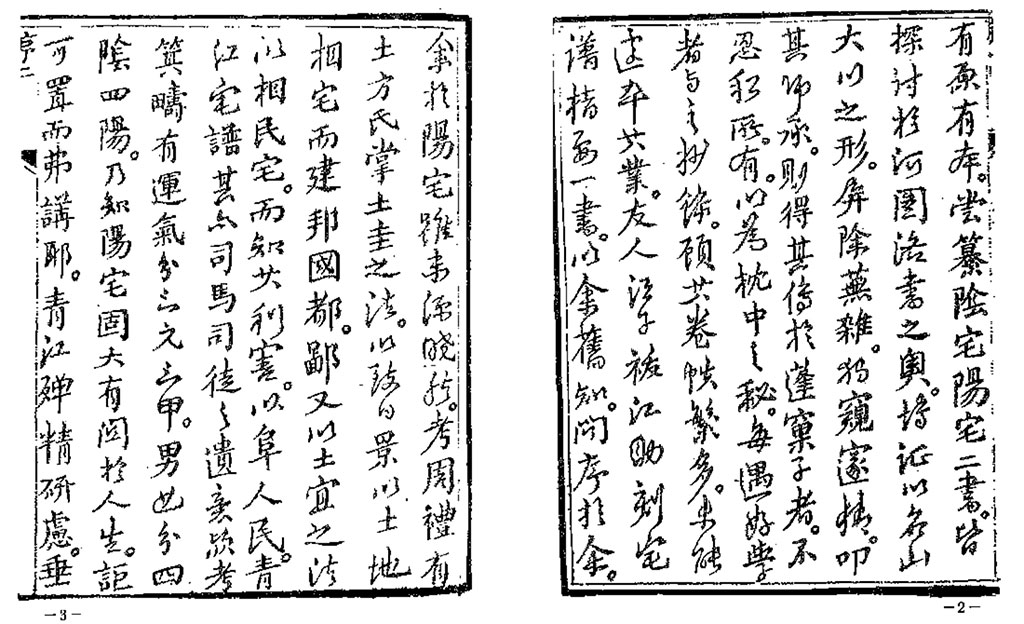 有原有本。嘗纂陰宅陽宅二書。皆
探討於河圖洛書之奧。博証以名山
大川之形。屏除蕪雜。獨窺邃精。叩
其師承。則得其傳於蓬窠子者。不
忍私所有。以為枕中之秘。每遇好學
者与之抄錄。顧其卷帙繁多。未能
遽卒其業。友人 江助刻宅
譜指要一書。以余舊知。問序於余。
-2-
余於陽宅雖未深曉。然考周禮有
土方氏掌土圭之法。以致日景以土地
相宅而建邦國都鄙。又以土宜之法
以相民宅。而知其利害。以阜人民。青
江宅譜其亦司馬司徒之遺意歟考
箕疇有運氣分三元三甲。男女分四
陰四陽。乃知陽宅固大有関於人生。詎
可置而弗講耶。青江殫精研慮。垂
序二
-3-